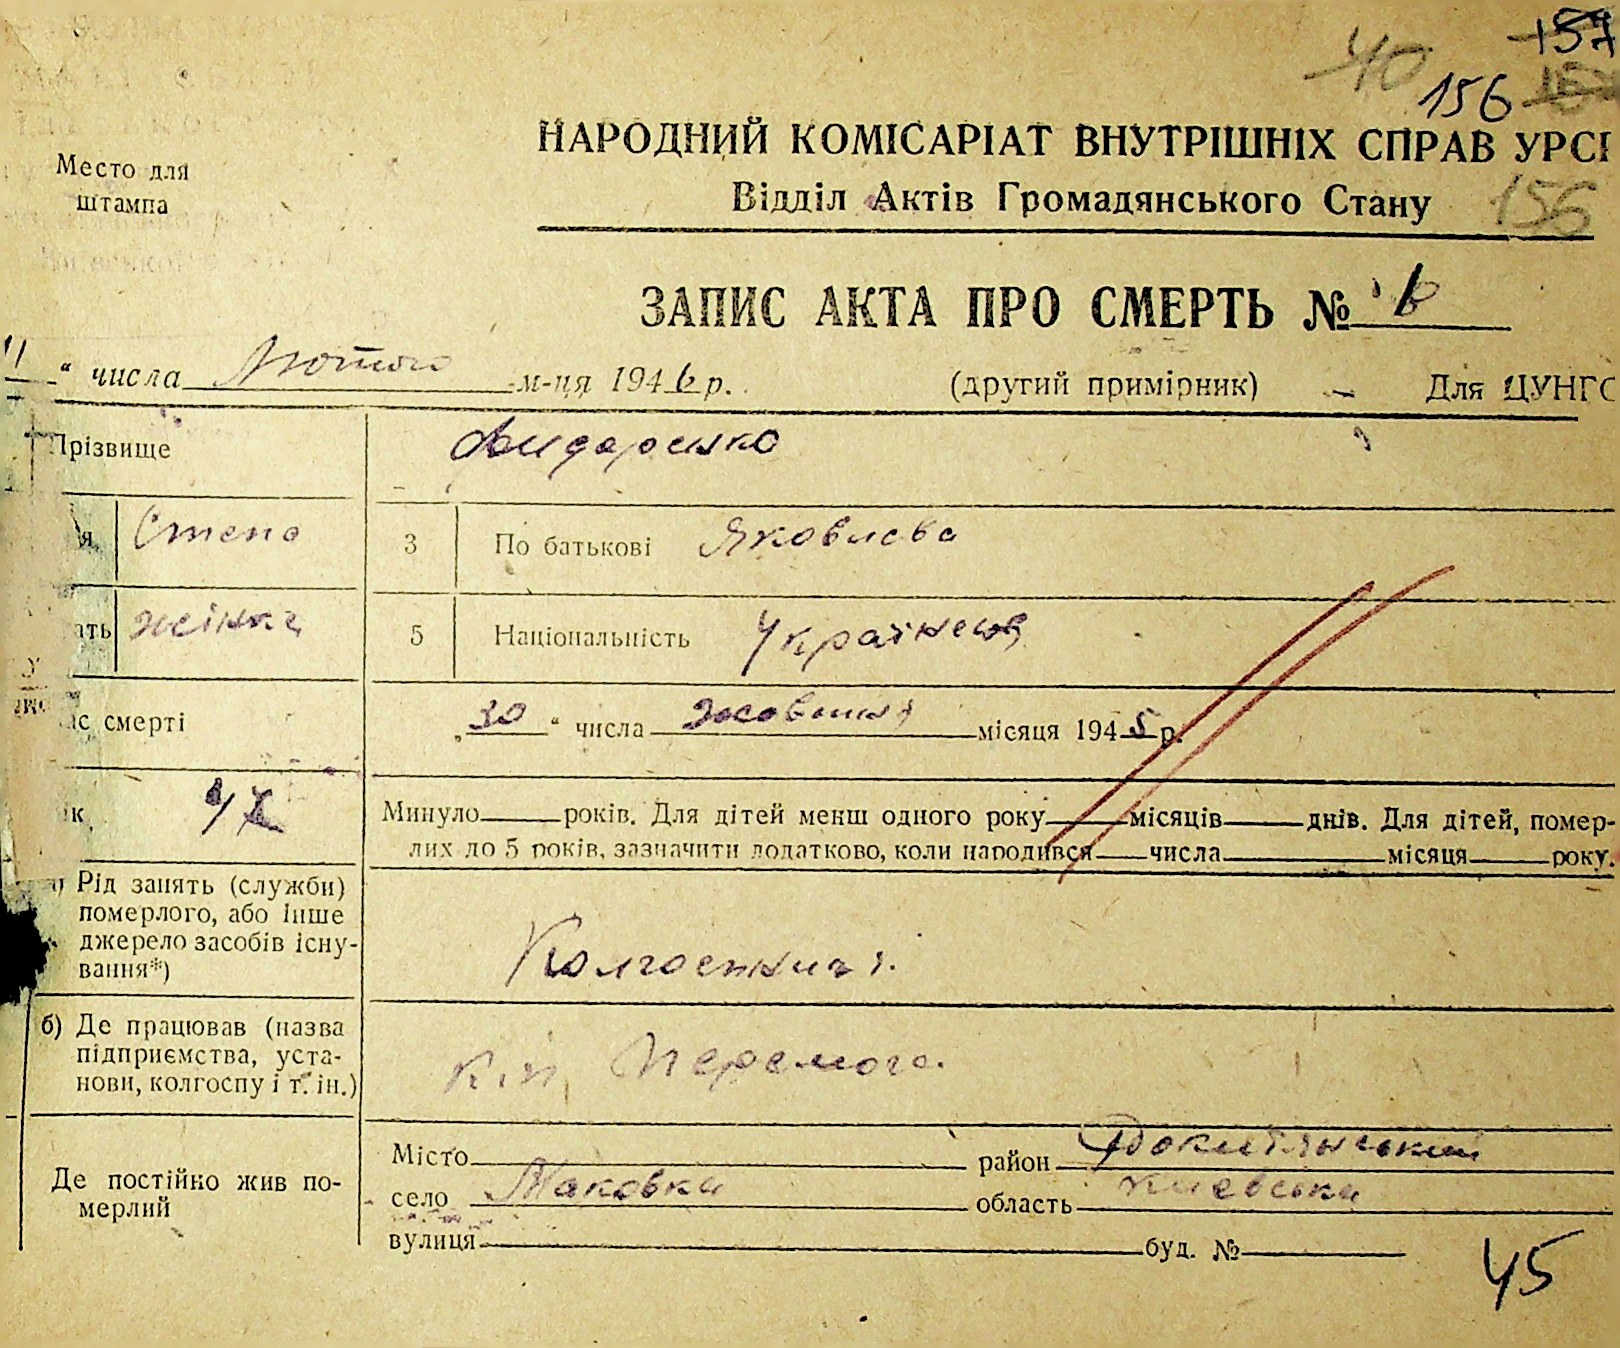 40 157
156
НАРОДНИЙ КОМІСАРІАТ ВНУТРІШНІХ СПРАВ УРСР
Место для штампа
Відділ Актів Громадянського Стану 156
ЗАПИС АКТА ПРО СМЕРТЬ № 6
11 " числа Лютого м-ця 1946 р. (другий примірник) Для ЦУНГС
Прізвище
я Степа 3 По батькові Яковлева
ать жінка 5 Національність Українка
ас смерті „30" числа жовтня місяця 1945 р.
ік Минуло ___ років. Для дітей менш одного року ___ місяців ___ днів. Для дітей, помер-
лих до 5 років, зазначити додатково, коли народився ___ числа ___ місяця ___ року.
Рід занять (служби)
померлого, або інше
джерело засобів існу-
вання*)
Колгоспниця
б) Де працював (назва
підприємства, уста-
нови, колгоспу і т. ін.)
к-п Перемога
Де постійно жив по-
мерлий
Місто ___ район Рокитянський
село Маковка область Киевська
вулиця ___ буд. № ___
45